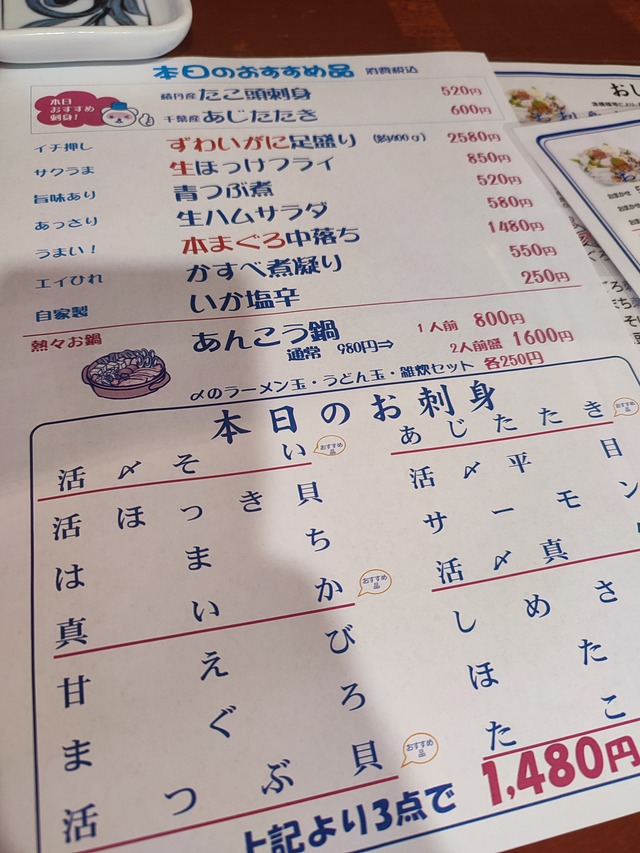 本日のおすすめ品 消費税込
本日
おすすめ
刺身!
積丹産たこ頭刺身 520円
千葉産あじたたき 600円
イチ押し ずわいがに足盛り (約400g) 2580円
サクうま 生ほっけフライ 850円
旨味あり 青つぶ煮 520円
あっさり 生ハムサラダ 580円
うまい! 本まぐろ中落ち 1480円
エイひれ かすべ煮凝り 550円
自家製 いか塩辛 250円
熱々お鍋 あんこう鍋 1人前 800円
通常 980円⇒ 2人前盛 1600円
〆のラーメン玉・うどん玉・雑炊セット 各250円
本日のお刺身
活〆そい おすすめ品
活ほっき貝
はまち
真いか おすすめ品
甘えび
まぐろ
活つぶ貝 おすすめ品
あじたたき おすすめ品
活〆平目
サーモン
活〆真
しめさ
ほた
たこ
上記より3点で 1,480円
おし